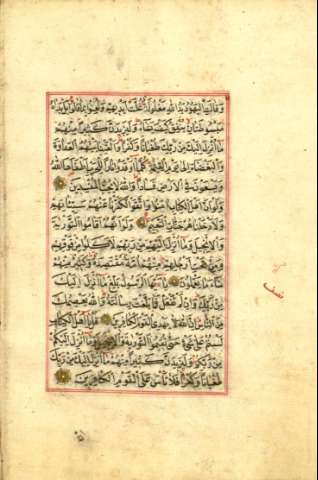 وقالت اليهود يد الله مغلولة غلت ايديهم ولعنوا بما قالوا بل يداه
مبسوطتان ينفق كيف يشاء وليزيدن كثيرا منهم
ما انزل اليك من ربك طغيانا وكفرا والقينا بينهم العداوة
والبغضاء الى يوم القيمة كلما اوقدوا نارا للحرب اطفاها الله
ويسعون في الارض فسادا والله لا يحب المفسدين
ولو ان اهل الكتاب امنوا واتقوا لكفرنا عنهم سيئاتهم
ولادخلناهم جنات النعيم ولو انهم اقاموا التورية
والانجيل وما انزل اليهم من ربهم لاكلوا من فوقهم
ومن تحت ارجلهم منهم امة مقتصدة وكثير منهم
ساء ما يعملون يا ايها الرسول بلغ ما انزل اليك
من ربك وان لم تفعل فما بلغت رسالته والله يعصمك
من الناس ان الله لا يهدي القوم الكافرين قل يا اهل الكتاب
لستم على شيء حتى تقيموا التورية والانجيل وما انزل اليكم
من ربكم وليزيدن كثيرا منهم ما انزل اليك من ربك
طغيانا وكفرا فلا تاس على القوم الكافرين